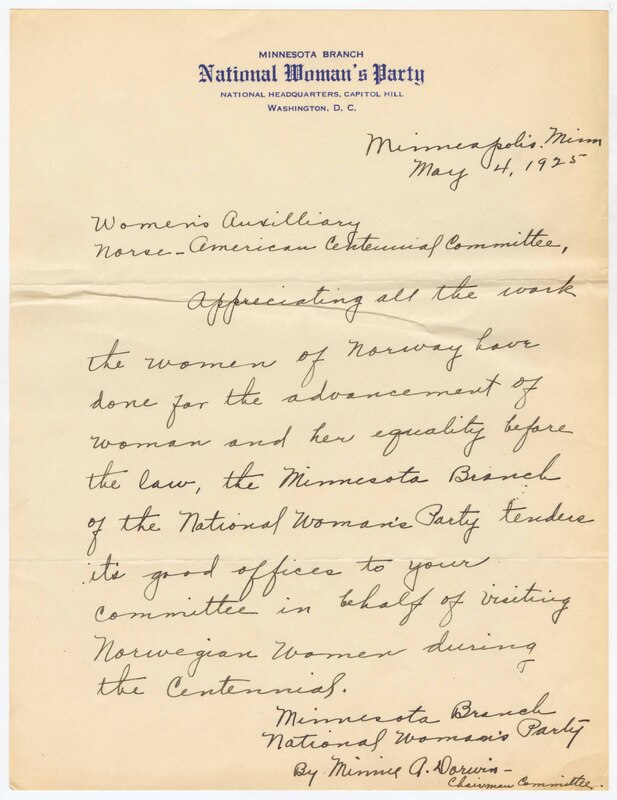 MINNESOTA BRANCH
National Woman's Party
NATIONAL HEADQUARTERS, CAPITOL HILL
WASHINGTON, D. C.
Minneapolis. Minn
May 4, 1925
Women's Auxilliary
Norse-American Centennial Committee,
Appreciating all the work
the women of Norway have
done for the advancement of
woman and her equality before
the law, the Minnesota Branch
of the National Woman's Party tenders
its good offices to your
committee in behalf of visiting
Norwegian Women during
the Centennial.
Minnesota Branch
National Woman's Party
By Minnie A. Dorwin-
Chairman Committee.